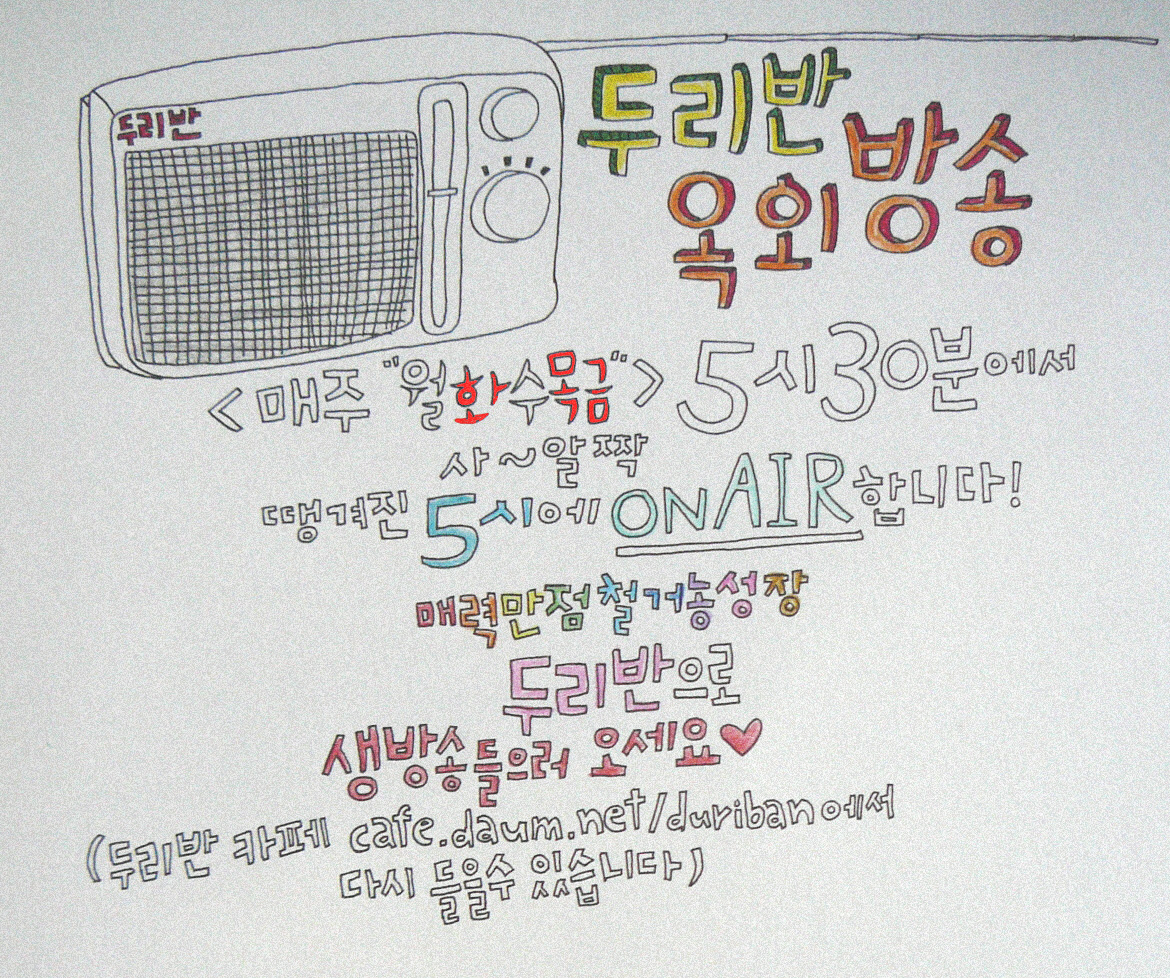 두리반
두리반
옥외방송
<매주 "월화수목금"> 5시30분에서
사~알짝
땡겨진 5시에 ONAIR합니다!
매력만점철거농성장
두리반으로
생방송들으러 오세요♥
(두리반 카페 cafe.daum.net/duriban에서
다시 들을수 있습니다)